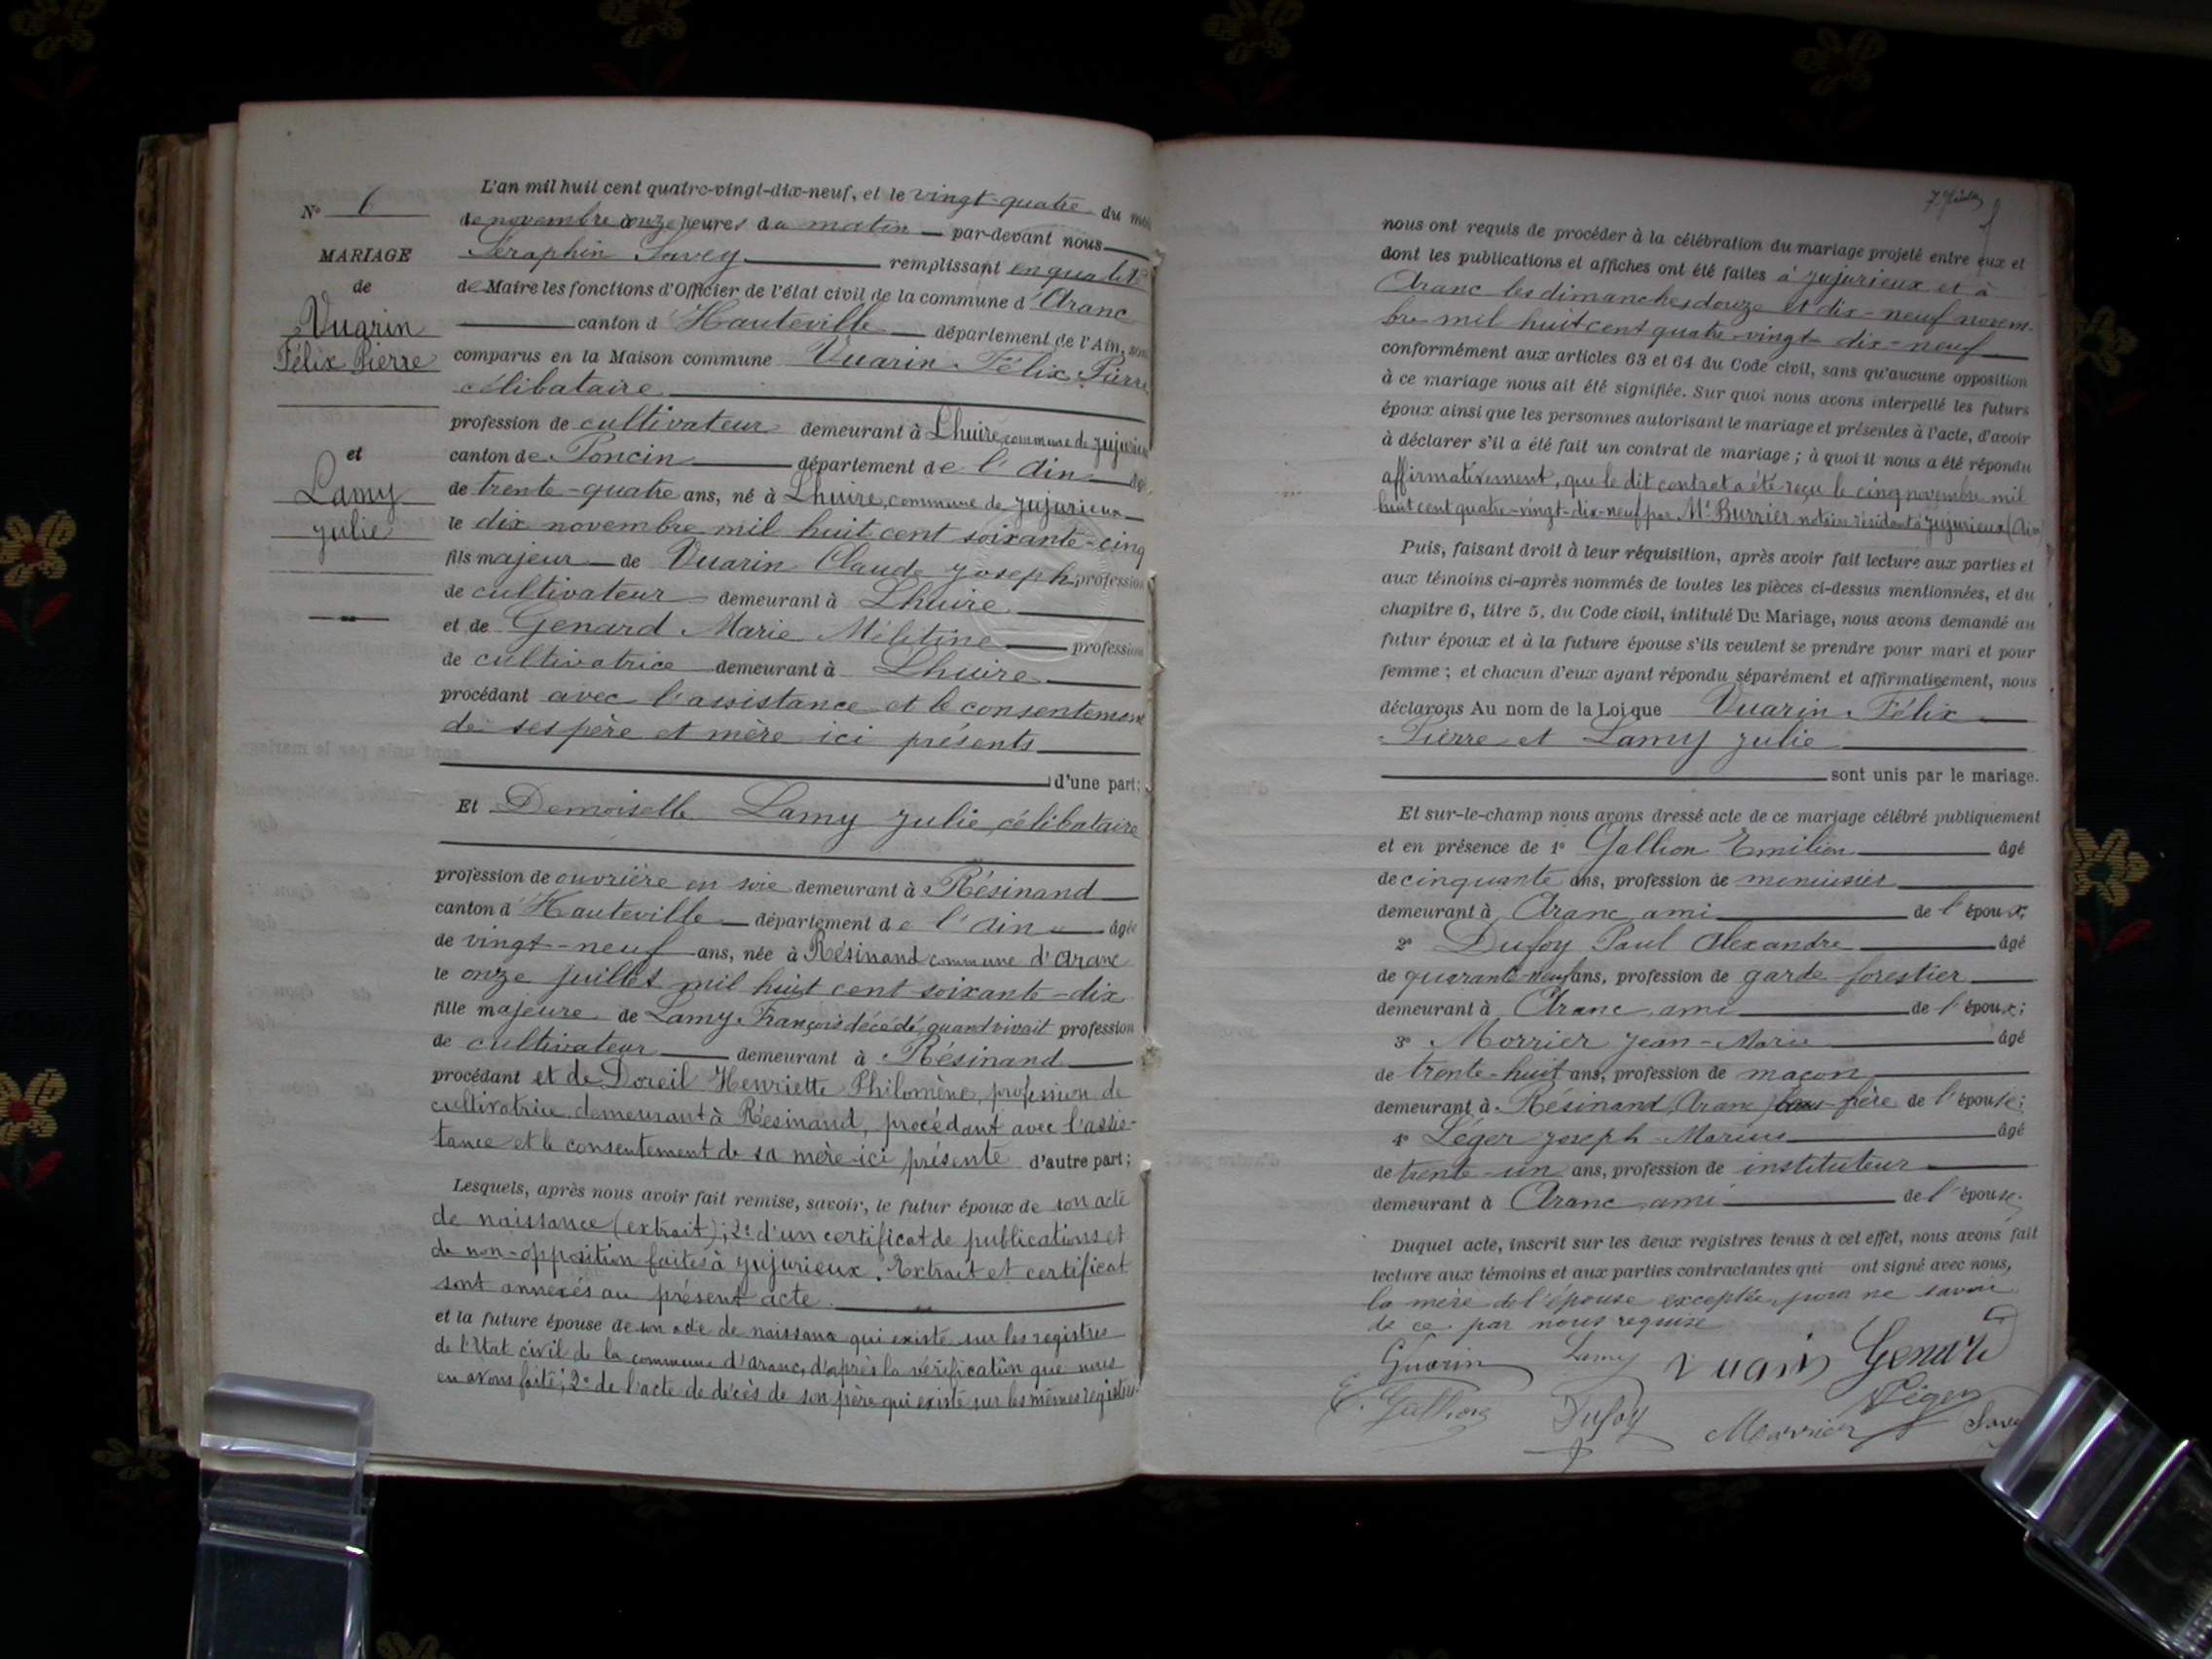 N° 6
MARIAGE
de
Vuarin
Félix Pierre
et
Lamy
Julie
L'an mil huit cent quatre-vingt-dix-neuf, et le vingt-quatre du mois
de novembre à onze heures du matin par-devant nous
Séraphin Savey remplissant en qualité
de Maire les fonctions d'Officier de l'état civil de la commune d'Aranc
canton d'Hauteville département de l'Ain, sont
comparus en la Maison commune Vuarin Félix Pierre
célibataire
profession de cultivateur demeurant à Lhuire, commune de Jujurieux
canton de Poncin département de l'Ain âgé
de trente-quatre ans, né à Lhuire, commune de Jujurieux
le dix novembre mil huit cent soixante-cinq
fils majeur de Vuarin Claude Joseph, profession
de cultivateur demeurant à Lhuire
et de Genard Marie Mélitine profession
de cultivatrice demeurant à Lhuire
procédant avec l'assistance et le consentement
de ses père et mère ici présents
d'une part;
Et Demoiselle Lamy Julie, célibataire
profession de ouvrière en soie demeurant à Résinand
canton d'Hauteville département de l'Ain âgée
de vingt-neuf ans, née à Résinand commune d'Aranc
le onze juillet mil huit cent soixante-dix
fille majeure de Lamy François décédé, quand vivait profession
de cultivateur demeurant à Résinand
procédant et de Doreil Henriette Philomène, profession de
cultivatrice demeurant à Résinand, procédant avec l'assis-
tance et le consentement de sa mère ici présente d'autre part;
Lesquels, après nous avoir fait remise, savoir, le futur époux de son acte
de naissance (extrait); 2° d'un certificat de publications et
de non-opposition faites à Jujurieux. Extrait et certificat
sont annexés au présent acte.
et la future épouse de son acte de naissance qui existe sur les registres
de l'Etat civil de la commune d'Aranc, d'après la vérification que nous
en avons faite; 2° de l'acte de décès de son père qui existe sur les mêmes registres.
nous ont requis de procéder à la célébration du mariage projeté entre eux et
dont les publications et affiches ont été faites à Jujurieux et à
Aranc les dimanches douze et dix-neuf novem-
bre mil huit cent quatre-vingt-dix-neuf
conformément aux articles 63 et 64 du Code civil, sans qu'aucune opposition
à ce mariage nous ait été signifiée. Sur quoi nous avons interpellé les futurs
époux ainsi que les personnes autorisant le mariage et présentes à l'acte, d'avoir
à déclarer s'il a été fait un contrat de mariage; à quoi il nous a été répondu
affirmativement, que le dit contrat a été reçu le cinq novembre mil
huit cent quatre-vingt-dix-neuf par Me Burrier notaire résidant à Jujurieux (Ain)
Puis, faisant droit à leur réquisition, après avoir fait lecture aux parties et
aux témoins ci-après nommés de toutes les pièces ci-dessus mentionnées, et du
chapitre 6, titre 5, du Code civil, intitulé Du Mariage, nous avons demandé au
futur époux et à la future épouse s'ils veulent se prendre pour mari et pour
femme; et chacun d'eux ayant répondu séparément et affirmativement, nous
déclarons Au nom de la Loi que Vuarin Félix
Pierre et Lamy Julie
sont unis par le mariage.
Et sur-le-champ nous avons dressé acte de ce mariage célébré publiquement
et en présence de 1° Gallion Emilien âgé
de cinquante ans, profession de menuisier
demeurant à Aranc, ami de l'époux;
2° Dufoy Paul Alexandre âgé
de quarante-neuf ans, profession de garde forestier
demeurant à Aranc, ami de l'époux;
3° Morrier Jean-Marie âgé
de trente-huit ans, profession de maçon
demeurant à Résinand (Aranc) frère de l'épouse;
4° Léger Joseph Marius âgé
de trente-un ans, profession de instituteur
demeurant à Aranc, ami de l'épouse.
Duquel acte, inscrit sur les deux registres tenus à cet effet, nous avons fait
lecture aux témoins et aux parties contractantes qui ont signé avec nous,
la mère de l'épouse exceptée, pour ne savoir
de ce par nous requise
Vuarin Lamy Vuarin Genard
E. Gallion Dufoy Morrier Léger Savey